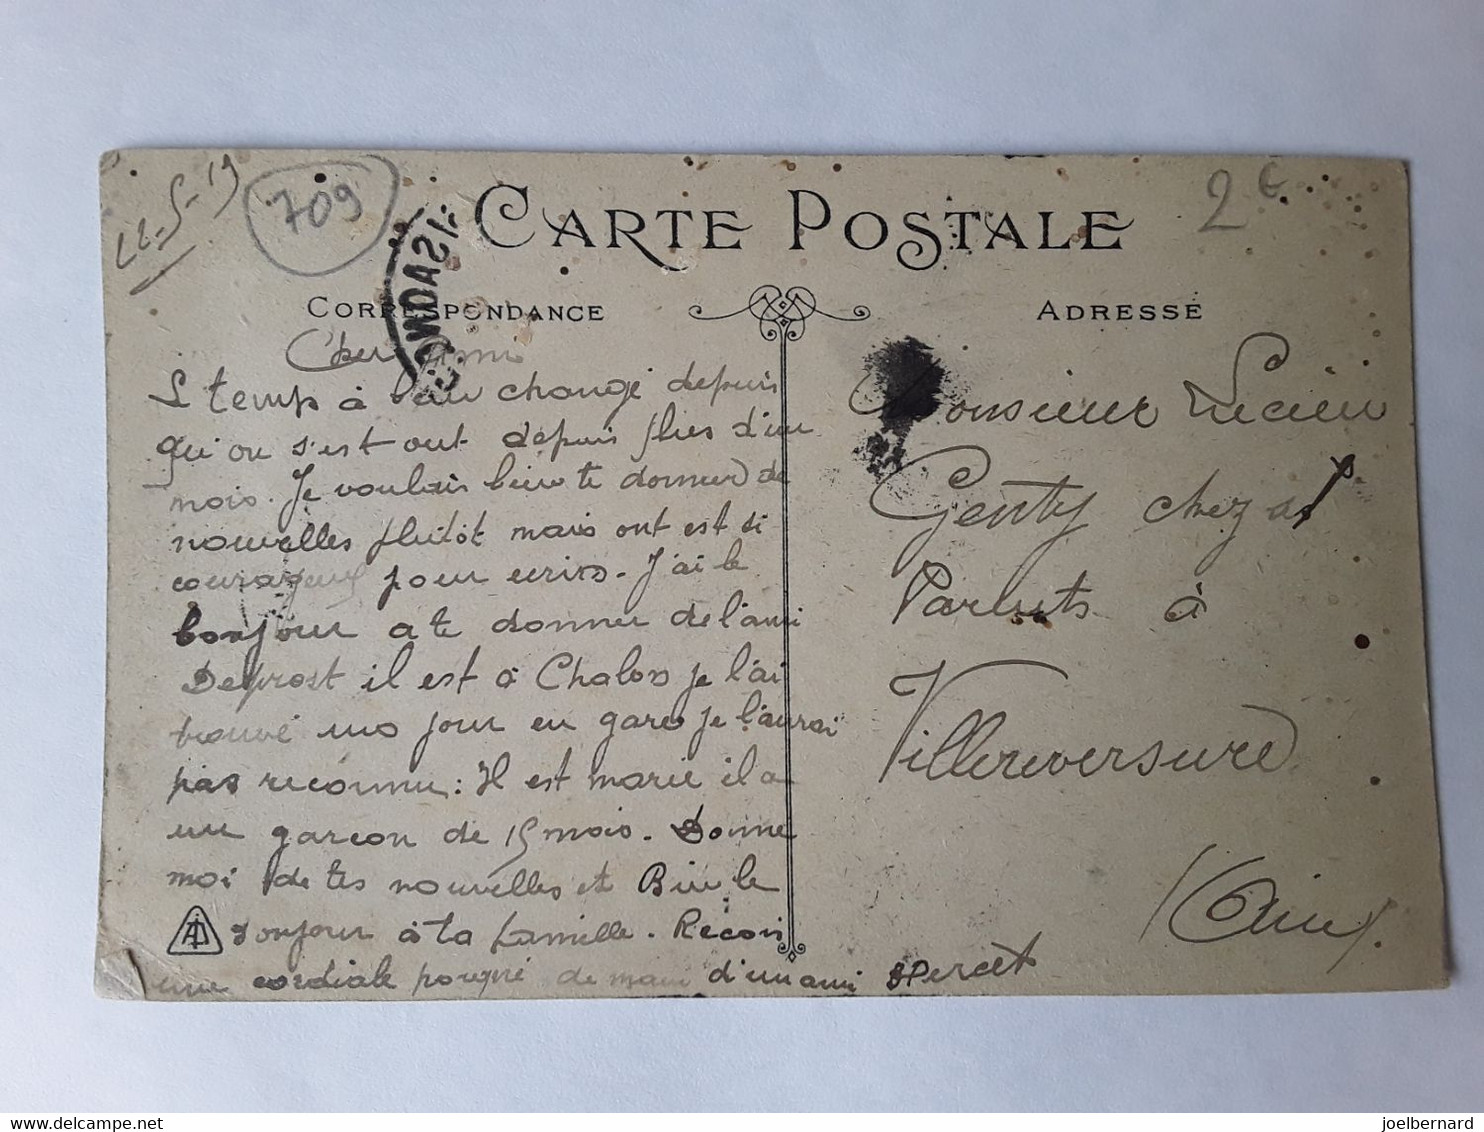 22-5-19
709
2€
CARTE POSTALE
CORRESPONDANCE
ADRESSE
Cher Ami
L temps à bau changé depuis
qui on s'est out depuis plus d'un
mois. Je voulais bien te donner de
nouvelles plutôt mais ont est si
courageux pour ecrire. J'ai le
bonjour a te donner de l'ami
Deprost il est à Chalon je l'ai
trouvé un jour en gare je l'aurai
pas reconnu: Il est marie il a
un garçon de 15 mois. Donne
moi de tes nouvelles et Bien le
Bonjour à ta famille. Recois
une cordiale poigné de main d'un ami Percet
Monsieur Lucien
Genty chez
Parents à
Villereversure
(Ain).
joelbernard